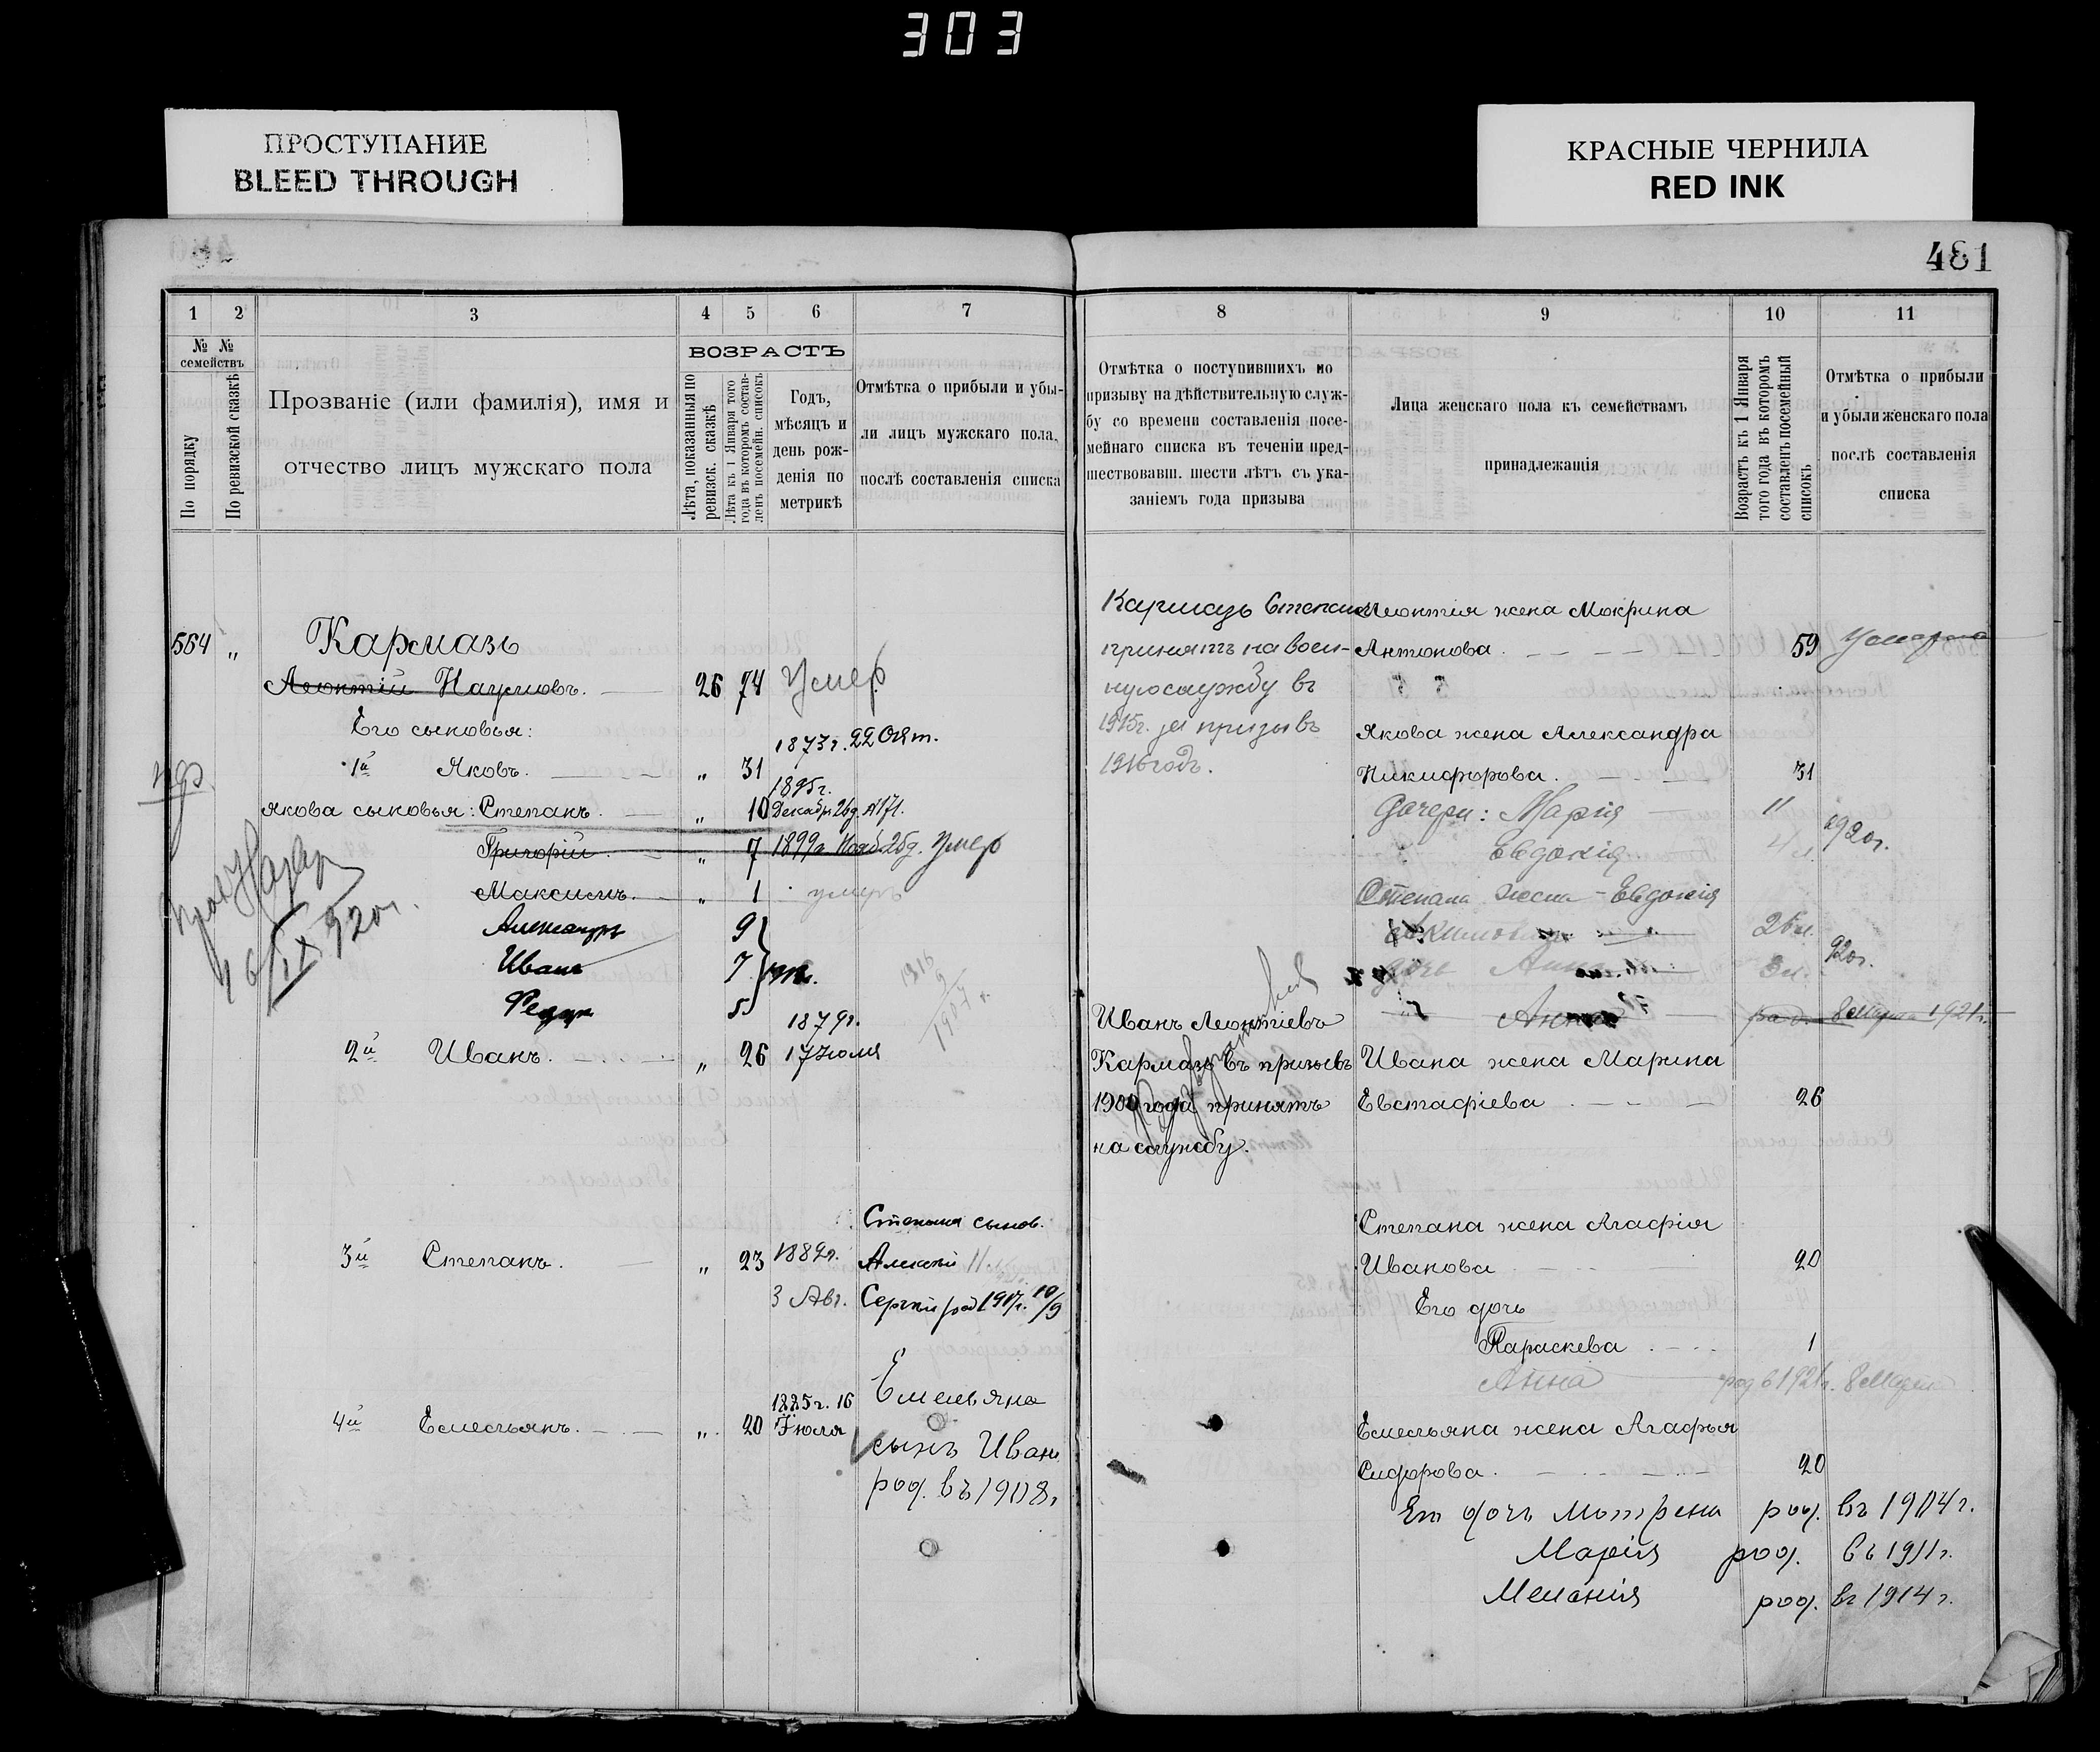 303
ПРОСТУПАНИЕ
BLEED THROUGH
КРАСНЫЕ ЧЕРНИЛА
RED INK
481
1 2 3 4 5 6 7
№ № семействъ
По порядку
По ревизской сказкѣ
Прозваніе (или фамилія), имя и
отчество лицъ мужскаго пола
ВОЗРАСТЪ
Лѣта, показанныя по
ревизск. сказкѣ
Лѣта къ 1 Января того
года въ которомъ состав-
ленъ посемейн. списокъ
Годъ,
мѣсяцъ и
день рож-
денія по
метрикѣ
Отмѣтка о прибыли и убы-
ли лицъ мужскаго пола,
послѣ составленія списка
564 „ Кармазъ
Леонтій Наумовъ. 26 74 Умер
Его сыновья:
1й Яковъ. „ 31 1873г. 22 Окт.
Якова сыновья: Степанъ. „ 10 1895г. Декабр. 26д.
Григорій. „ 7 1899г Нояб. 25д. Умер
Максимъ. „ 1 умеръ
Александръ 9
Иванъ 7
Федор 5
1920г.
2й Иванъ. „ 26 1879г. 17 Іюля
3й Степанъ. „ 23 1882г. 3 Авг.
Степана сынов.
Сергѣй род 1917г. 10/9
4й Емельянъ. „ 20 1885г. 16 Іюля
Емельяна
сынъ Иван
род. въ 1908г
8 9 10 11
Отмѣтка о поступившихъ по
призыву на дѣйствительную служ-
бу со времени составленія посе-
мейнаго списка въ теченіи пред-
шествовавш. шести лѣтъ съ ука-
заніемъ года призыва
Лица женскаго пола къ семействамъ
принадлежащія
Возрастъ къ 1 Января
того года въ которомъ
составленъ посемейный
списокъ
Отмѣтка о прибыли
и убыли женскаго пола
послѣ составленія
списка
Кармазъ Степанъ
принятъ на воен-
ную службу въ
1915г. за призывъ
1916 годъ.
Иванъ Леонтіевъ
Кармазъ въ призывъ
1900 года принятъ
на службу.
Леонтія жена Мокрина
Антонова. 59 Умерла
Якова жена Александра
Никифорова. 31
Дочери: Марія 11
Евдокія 4 л. 1920г.
Степана жена - Евдокія
дочь Анна 920г.
Анна род. 8 Марта 1921г.
Ивана жена Марина
Евстафіева 26
Степана жена Агафія
Иванова 20
Его дочь
Параскева 1
Анна род в 1921г. 8 Марта
Емельяна жена Агафья
Сидорова. 20
Его дочь Мотрена род. въ 1904г.
Марія род. въ 1911г.
Меланія род. въ 1914г.